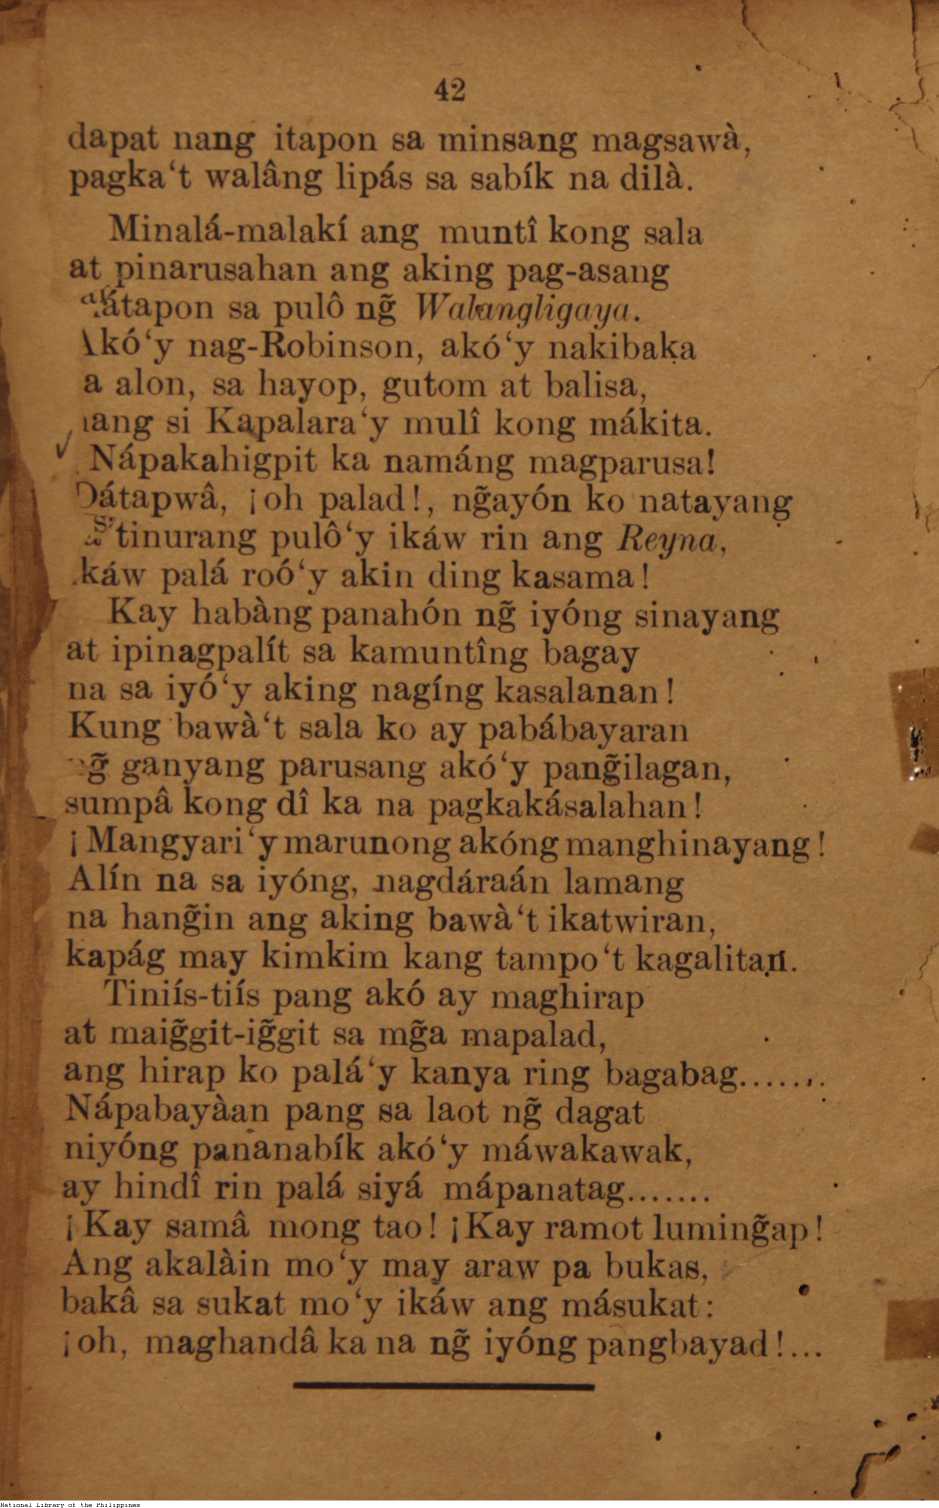 42
dapat nang itapon sa minsang magsawà,
pagka‘t walâng lipás sa sabík na dilà.
Minalá-malakí ang muntî kong sala
at pinarusahan ang aking pag-asang
sa pulô ng̃ Walangligaya.
Akó‘y nag-Robinson, akó‘y nakibaka
a alon, sa hayop, gutom at balisa,
si Kapalara‘y mulî kong mákita.
Nápakahigpit ka namáng magparusa!
Dátapwâ, ¡oh palad!, ng̃ayón ko natayang
tinurang pulô‘y ikáw rin ang Reyna,
ikáw palá roó‘y akin ding kasama!
Kay habàng panahón ng̃ iyóng sinayang
at ipinagpalít sa kamuntîng bagay
na sa iyó‘y aking nagíng kasalanan!
Kung bawà‘t sala ko ay pabábayaran
ng̃ ganyang parusang akó‘y pang̃ilagan,
sumpâ kong dî ka na pagkakásalahan!
¡Mangyari‘y marunong akóng manghinayang!
Alín na sa iyóng, nagdáraán lamang
na hang̃in ang aking bawà‘t ikatwiran,
kapág may kimkim kang tampo‘t kagalitan.
Tiniís-tiís pang akó ay maghirap
at maig̃git-ig̃git sa mg̃a mapalad,
ang hirap ko palá‘y kanya ring bagabag.......
Nápabayàan pang sa laot ng̃ dagat
niyóng pananabík akó‘y máwakawak,
ay hindî rin palá siyá mápanatag.......
¡Kay samâ mong tao! ¡Kay ramot luming̃ap!
Ang akalàin mo‘y may araw pa bukas,
bakâ sa sukat mo‘y ikáw ang másukat:
¡oh, maghandâ ka na ng̃ iyóng pangbayad!...
National Library of the Philippines